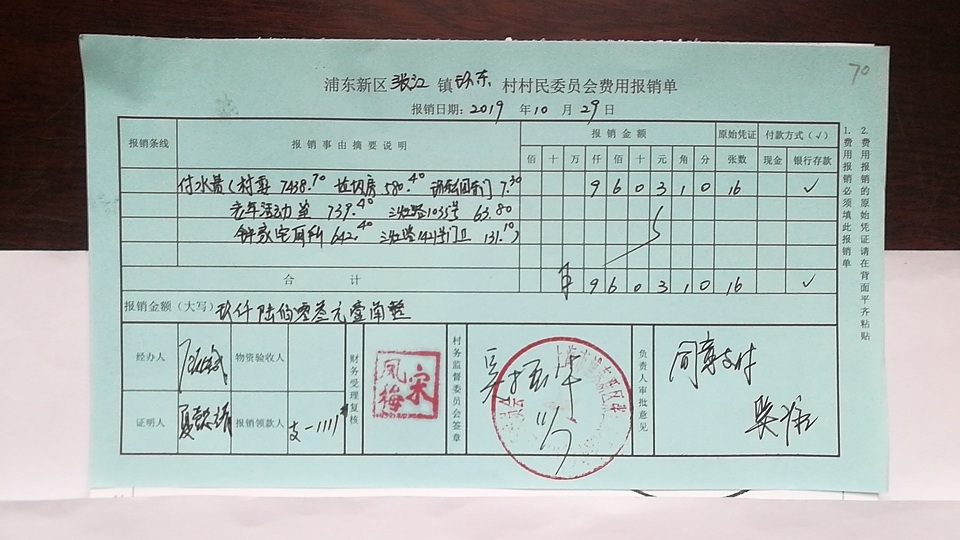 70
浦东新区张江镇环东村村民委员会费用报销单
报销日期：2019年10月29日
报销条线 报销事由摘要说明 报销金额 原始凭证 付款方式（√）
佰 十 万 仟 佰 十 元 角 分 张数 现金 银行存款
付水费（村委 7438.70 垃圾房 580.40 7.30 9 6 0 3 1 0 16 √
老年活动室 739.40 三灶路1035号 63.80
钟家宅厕所 642.40 1421号门卫 131.10）
合计 ¥ 9 6 0 3 1 0 16 √
报销金额（大写）玖仟陆佰零叁元壹角整
经办人 物资验收人 财务受理复核 宋凤梅 村务监督委员会签章 吴振华 负责人审批意见 同意支付
证明人 报销领款人 支-1111#
1.费用报销必须填此报销单
2.费用报销的原始凭证请在背面平齐粘贴